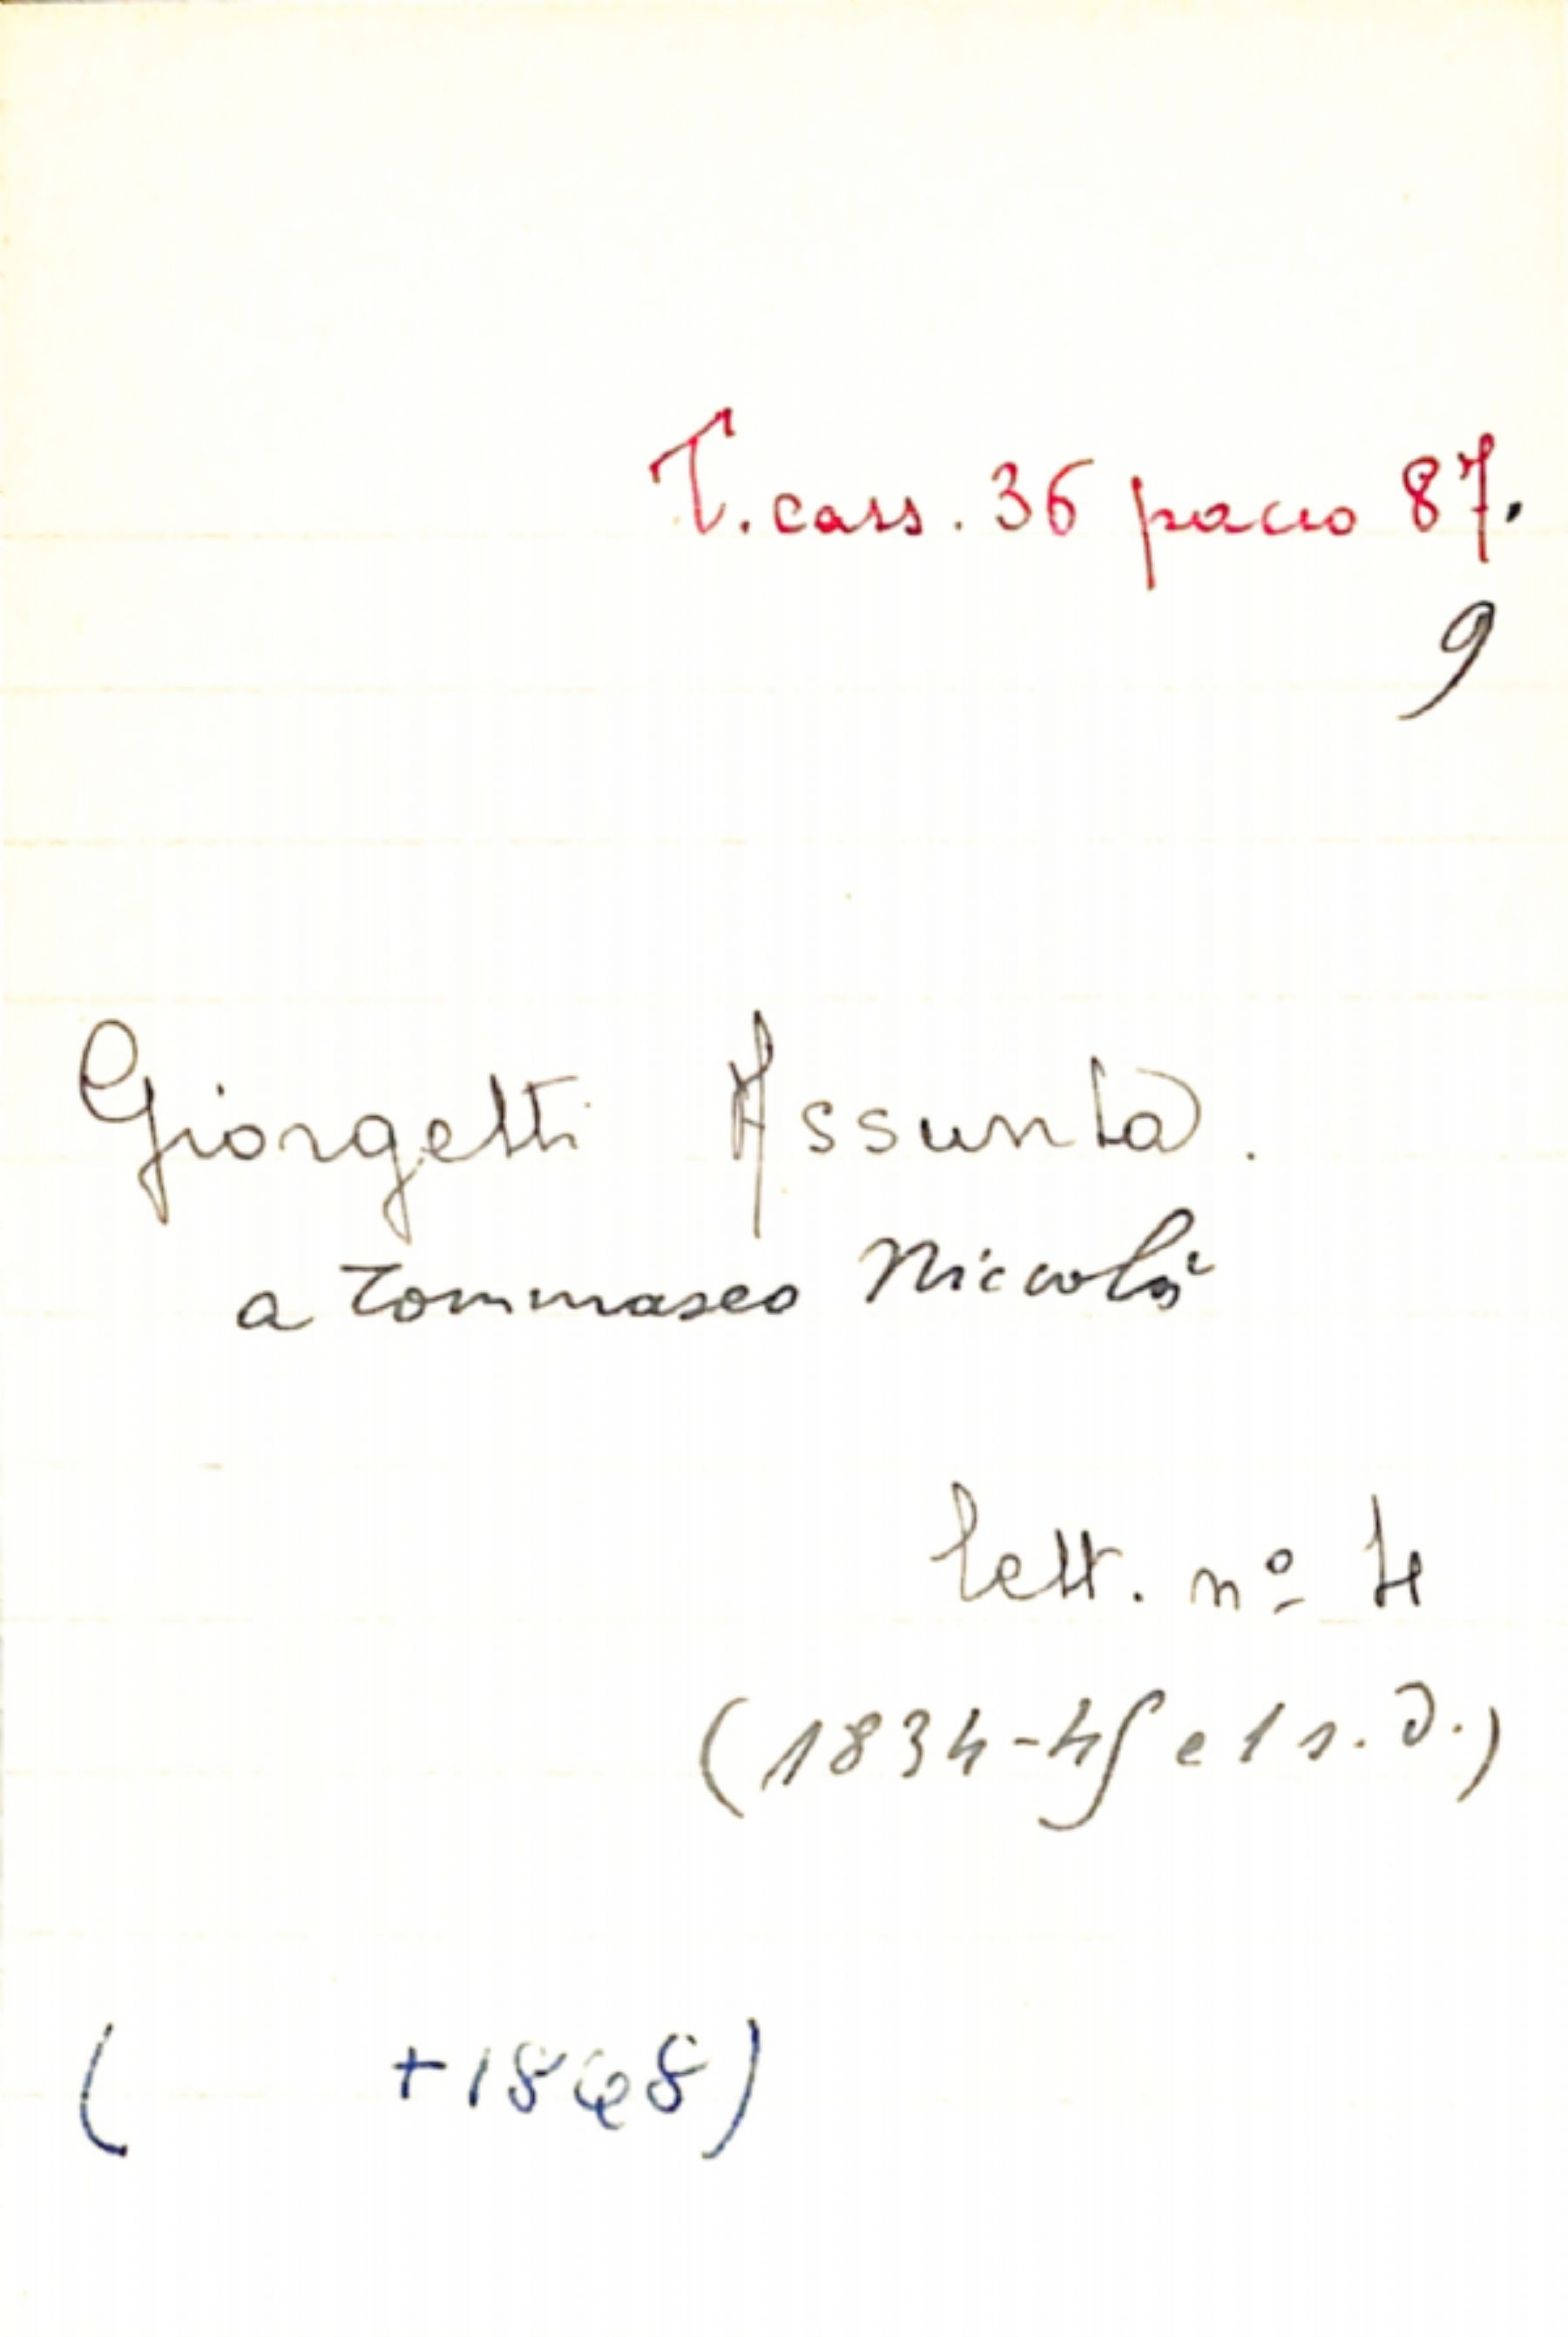 T. cass. 36 pacco 87.
9
Giorgetti Assunta.
a Tommaseo Niccolò
lett. nº 4
(1834-45 e 1 s.d.)
( +1868)